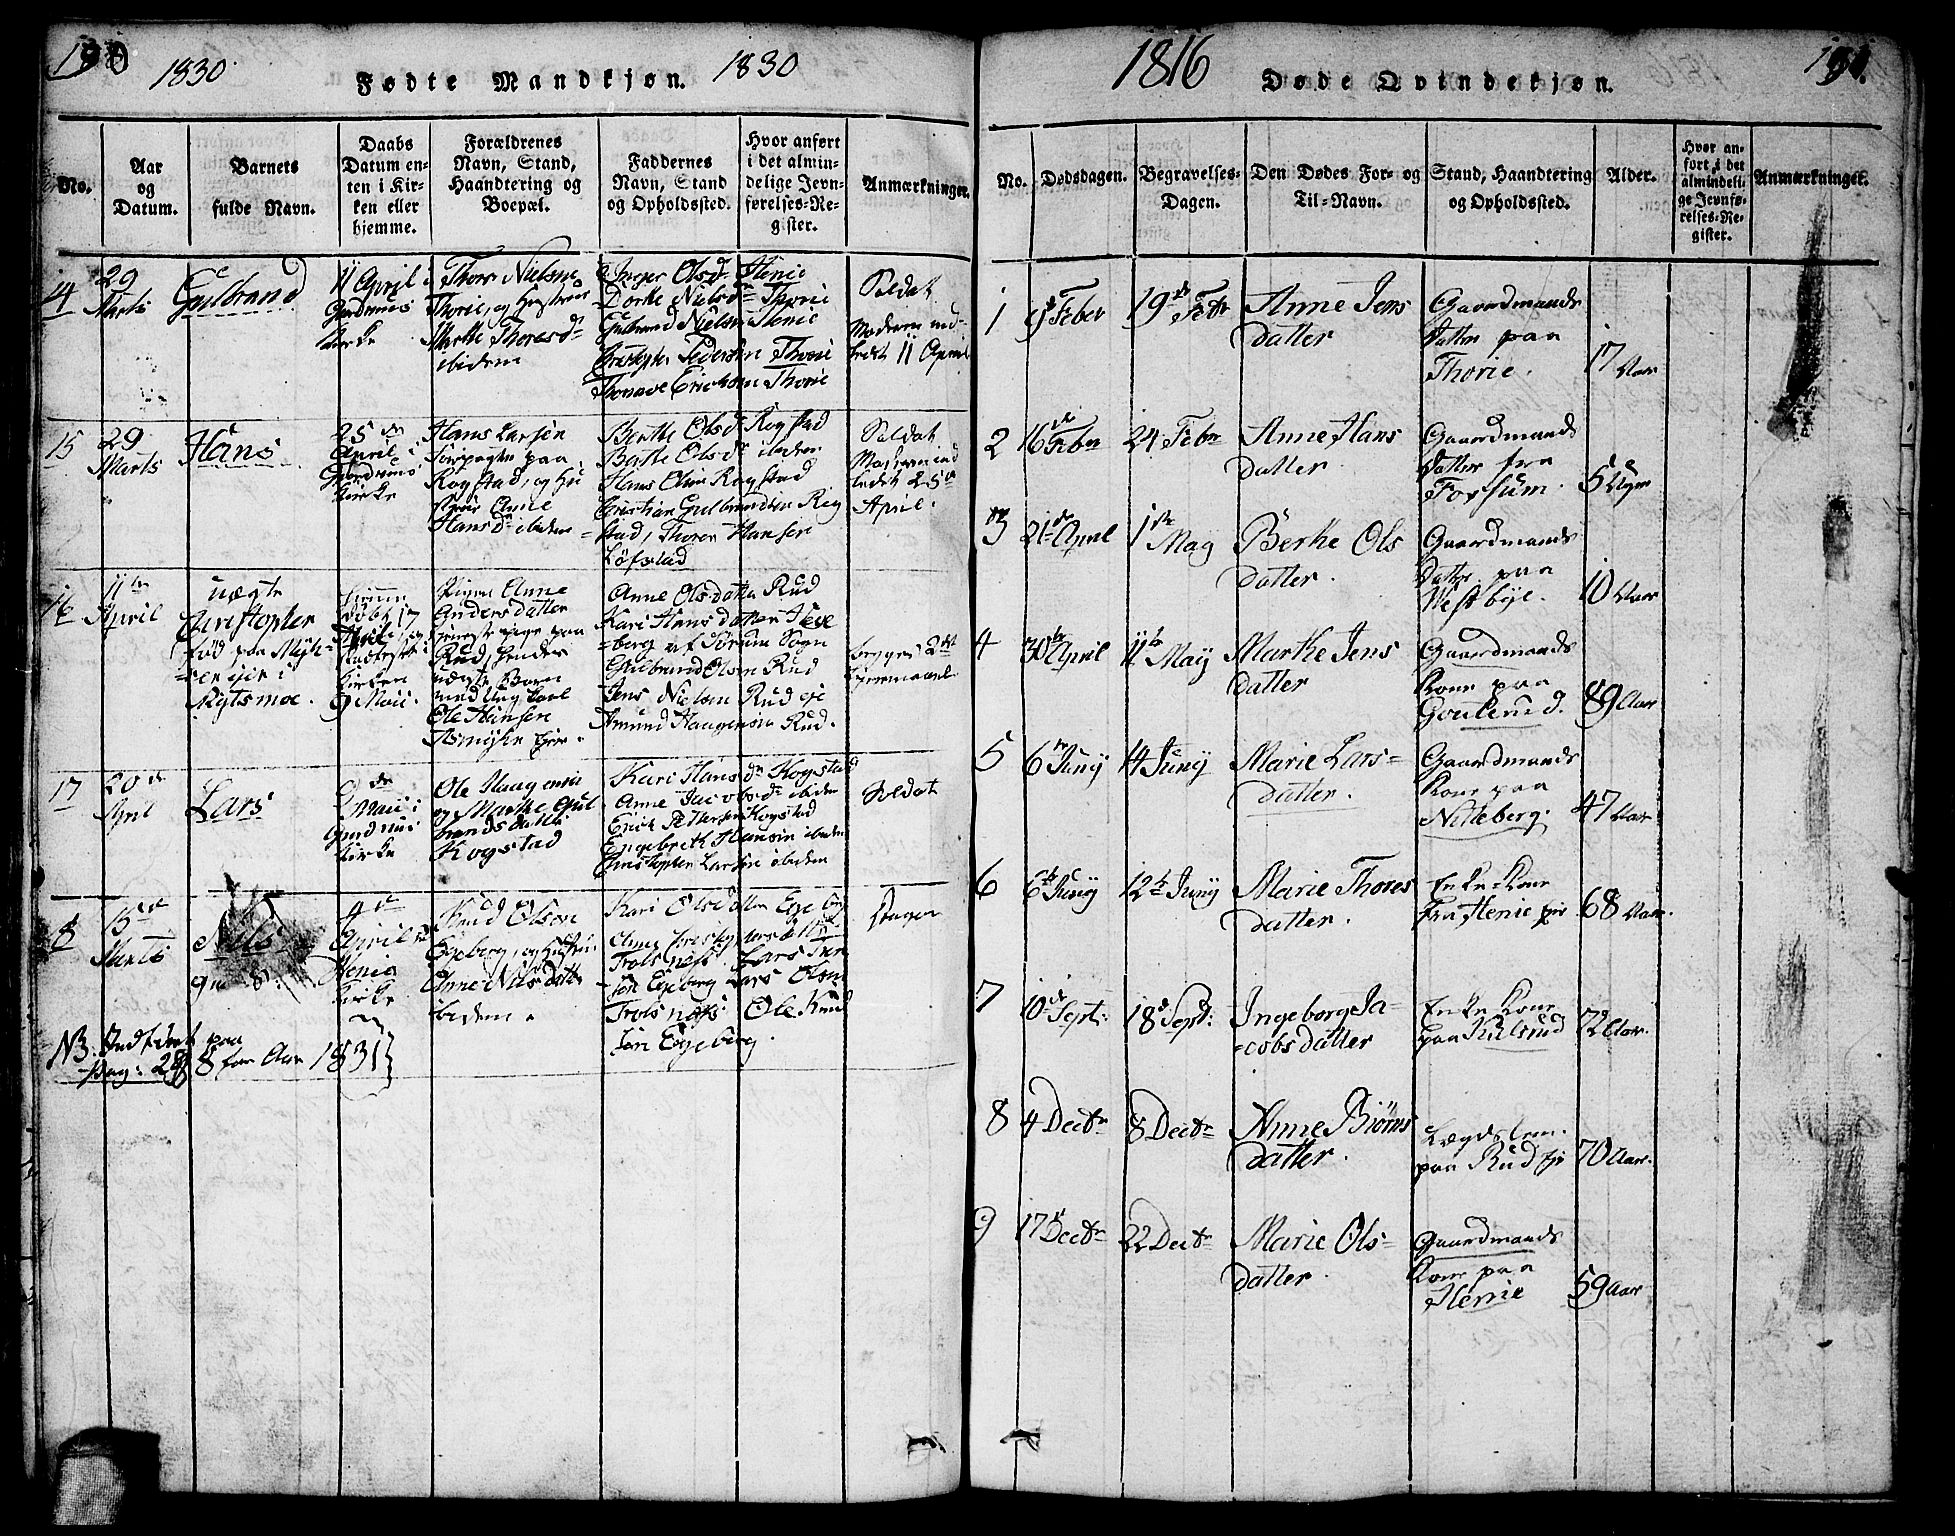 190
1830
Fødte Mandkjøn.
1830
No.
Aar
og
Datum.
Barnets
fulde Navn.
Daabs
Datum en-
ten i Kir-
ken eller
hjemme.
Forældrenes
Navn, Stand,
Haandtering og
Boepæl.
Faddernes
Navn, Stand
og Opholdssted.
Hvor anført
i det almin-
delige Jevn-
førelses-Re-
gister.
Anmærkninger.
14
29
Marts
Gulbrand
11 April i
Kirke
Thore Nielsen
Thorie, og Hustrue
Marthe Thoresdr
ibidem
Inger Olsdr Henie
Dorthe Nielsdr Thorie
Gulbrand Nielsen Henie
Pedersen Thorie
Ericksen Thorie
Soldat
Moderen ind-
ledt 11 April
15
29
Marts
Hans
25de
April i
Kirke
Hans Larsen
paa
Rogstad, og Hu
Anne
Hansdr ibidem
Berthe Olsdr Rogstad
Berthe Olsdr ibidem
Hans Olsen Rogstad
Cristian Gulbrandsen Rog
stad, Thoren Hansen
Løfstad
Soldat
Moderen ind
ledt 25de
April.
16
11te
April
uægte
Christopher
fød paa
i
døbt 17
April, og
Kirken
9 Maii.
Pigen Anne
Andersdatter
paa
Rud, hendes
uægte Barn
Ole Hansen
Anne Olsdatter Rud
Kari Hansdatter
berg af Sørum Sogn
Gulbrand Olsen Rud
Jens Nielsen Rud eje
Amund Haagensen Rud.
begges 2det
17
20de
April
Lars
Maii i
Kirke
Ole Haagensen
og Marthe Gul
brandsdatter
Kogstad
Kari Hansdr Kogstad
Anne Jacobsdr ibidem
Erick Pettersen Kogstad
Engebreth Hansen ibidem
Christopher Larsen ibidem
Soldat
18
15de
Marts
Nils
4de
April
Henie
Kirke
Knud Olson
Egeberg, og Hustru
Anne Nilsdatter
ibidem.
Kari Olsdatter Egeberg
Trolsnes. Lars
sen Egeberg Lars Olsen
Trolsnes Ole Knud
sen Egeberg.
NB. Indført paa
Pag: 288 for Aar 1831
1816
Døde Qvindekjøn.
191.
No.
Dødsdagen.
Begravelses-
Dagen.
Den Dødes For- og
Til-Navn.
Stand, Haandtering
og Opholdssted.
Alder.
Hvor an-
ført i det
almindeli-
ge Jevnfø-
relses-Re-
gister.
Anmærkninger.
1
9de Feber
19de Febr
Anne Jens
datter
Gaardmands
Datter paa
Thorie.
17 Aar
2
16de Febr
24 Febr
Anne Hans
datter.
Gaardmands
Datter fra
Forsum.
5 Uger
3
21de April
1te May
Berthe Ols
datter.
Gaardmands
Datter paa
Westbye.
10 Aar
4
30te April
11te May
Marthe Jens
datter
Gaardmands
Kone paa
Goulerud.
89 Aar
5
6te Juny
14 Juny
Marie Lars-
datter.
Gaardmands
Kone paa
Nitteberg.
47 Aar
6
6te Juny
12te Juny
Marie Thores
datter.
Enke-Kone
fra Henie eje
68 Aar.
7
10de Sept:
18de Sept:
Ingeborg Ja-
cobsdatter
Enke Kone
paa Kulsrud
72 Aar.
8
4 Decbr
8 Decbr
Anne Biørns
datter.
Lægdslem.
paa Rud eje
70 Aar.
9
17de Decbr
22 Decbr
Marie Ols-
datter.
Gaardmands
Kone paa
Henie
59 Aar